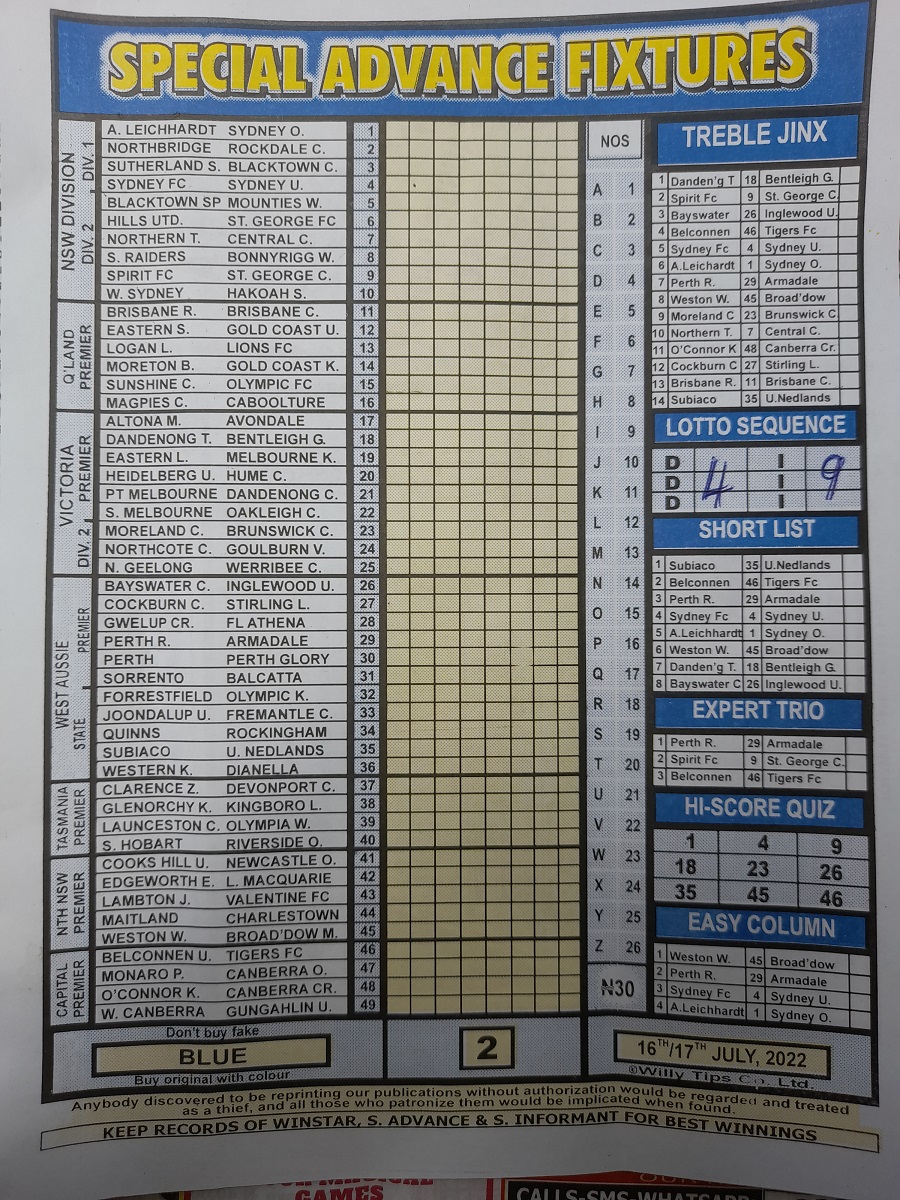 SPECIAL ADVANCE FIXTURES
NSW DIVISION
DIV. 2 DIV. 1
A. LEICHHARDT SYDNEY O. 1
NORTHBRIDGE ROCKDALE C. 2
SUTHERLAND S. BLACKTOWN C. 3
SYDNEY FC SYDNEY U. 4
BLACKTOWN SP MOUNTIES W. 5
HILLS UTD. ST. GEORGE FC 6
NORTHERN T. CENTRAL C. 7
S. RAIDERS BONNYRIGG W. 8
SPIRIT FC ST. GEORGE C. 9
W. SYDNEY HAKOAH S. 10
Q'LAND
PREMIER
BRISBANE R. BRISBANE C. 11
EASTERN S. GOLD COAST U. 12
LOGAN L. LIONS FC 13
MORETON B. GOLD COAST K. 14
SUNSHINE C. OLYMPIC FC 15
MAGPIES C. CABOOLTURE 16
VICTORIA
DIV. 2 PREMIER
ALTONA M. AVONDALE 17
DANDENONG T. BENTLEIGH G. 18
EASTERN L. MELBOURNE K. 19
HEIDELBERG U. HUME C. 20
PT MELBOURNE DANDENONG C. 21
S. MELBOURNE OAKLEIGH C. 22
MORELAND C. BRUNSWICK C. 23
NORTHCOTE C. GOULBURN V. 24
N. GEELONG WERRIBEE C. 25
WEST AUSSIE
STATE PREMIER
BAYSWATER C. INGLEWOOD U. 26
COCKBURN C. STIRLING L. 27
GWELUP CR. FL ATHENA 28
PERTH R. ARMADALE 29
PERTH PERTH GLORY 30
SORRENTO BALCATTA 31
FORRESTFIELD OLYMPIC K. 32
JOONDALUP U. FREMANTLE C. 33
QUINNS ROCKINGHAM 34
SUBIACO U. NEDLANDS 35
WESTERN K. DIANELLA 36
TASMANIA
PREMIER
CLARENCE Z. DEVONPORT C. 37
GLENORCHY K. KINGBORO L. 38
LAUNCESTON C. OLYMPIA W. 39
S. HOBART RIVERSIDE O. 40
NTH NSW
PREMIER
COOKS HILL U. NEWCASTLE O. 41
EDGEWORTH E. L. MACQUARIE 42
LAMBTON J. VALENTINE FC 43
MAITLAND CHARLESTOWN 44
WESTON W. BROAD'DOW M. 45
CAPITAL
PREMIER
BELCONNEN U. TIGERS FC 46
MONARO P. CANBERRA O. 47
O'CONNOR K. CANBERRA CR. 48
W. CANBERRA GUNGAHLIN U. 49
NOS
A 1
B 2
C 3
D 4
E 5
F 6
G 7
H 8
I 9
J 10
K 11
L 12
M 13
N 14
O 15
P 16
Q 17
R 18
S 19
T 20
U 21
V 22
W 23
X 24
Y 25
Z 26
N30
TREBLE JINX
1 Danden'g T 18 Bentleigh G.
2 Spirit Fc 9 St. George C.
3 Bayswater 26 Inglewood U.
4 Belconnen 46 Tigers Fc
5 Sydney Fc 4 Sydney U.
6 A.Leichardt 1 Sydney O.
7 Perth R. 29 Armadale
8 Weston W. 45 Broad'dow
9 Moreland C 23 Brunswick C.
10 Northern T. 7 Central C.
11 O'Connor K 48 Canberra Cr.
12 Cockburn C 27 Stirling L.
13 Brisbane R. 11 Brisbane C.
14 Subiaco 35 U.Nedlands
LOTTO SEQUENCE
D I
D 4 I 9
D I
SHORT LIST
1 Subiaco 35 U.Nedlands
2 Belconnen 46 Tigers Fc
3 Perth R. 29 Armadale
4 Sydney Fc 4 Sydney U.
5 A.Leichhardt 1 Sydney O.
6 Weston W. 45 Broad'dow
7 Danden'g T. 18 Bentleigh G.
8 Bayswater C 26 Inglewood U.
EXPERT TRIO
1 Perth R. 29 Armadale
2 Spirit Fc 9 St. George C.
3 Belconnen 46 Tigers Fc
HI-SCORE QUIZ
1 4 9
18 23 26
35 45 46
EASY COLUMN
1 Weston W. 45 Broad'dow
2 Perth R. 29 Armadale
3 Sydney Fc 4 Sydney U.
4 A.Leichhardt 1 Sydney O.
Don't buy fake
BLUE
Buy original with colour
2
16TH/17TH JULY, 2022
©Willy Tips Co. Ltd.
Anybody discovered to be reprinting our publications without authorization would be regarded and treated
as a thief, and all those who patronize them would be implicated when found.
KEEP RECORDS OF WINSTAR, S. ADVANCE & S. INFORMANT FOR BEST WINNINGS
GAMES
CALLS-SMS-WHATSAPP